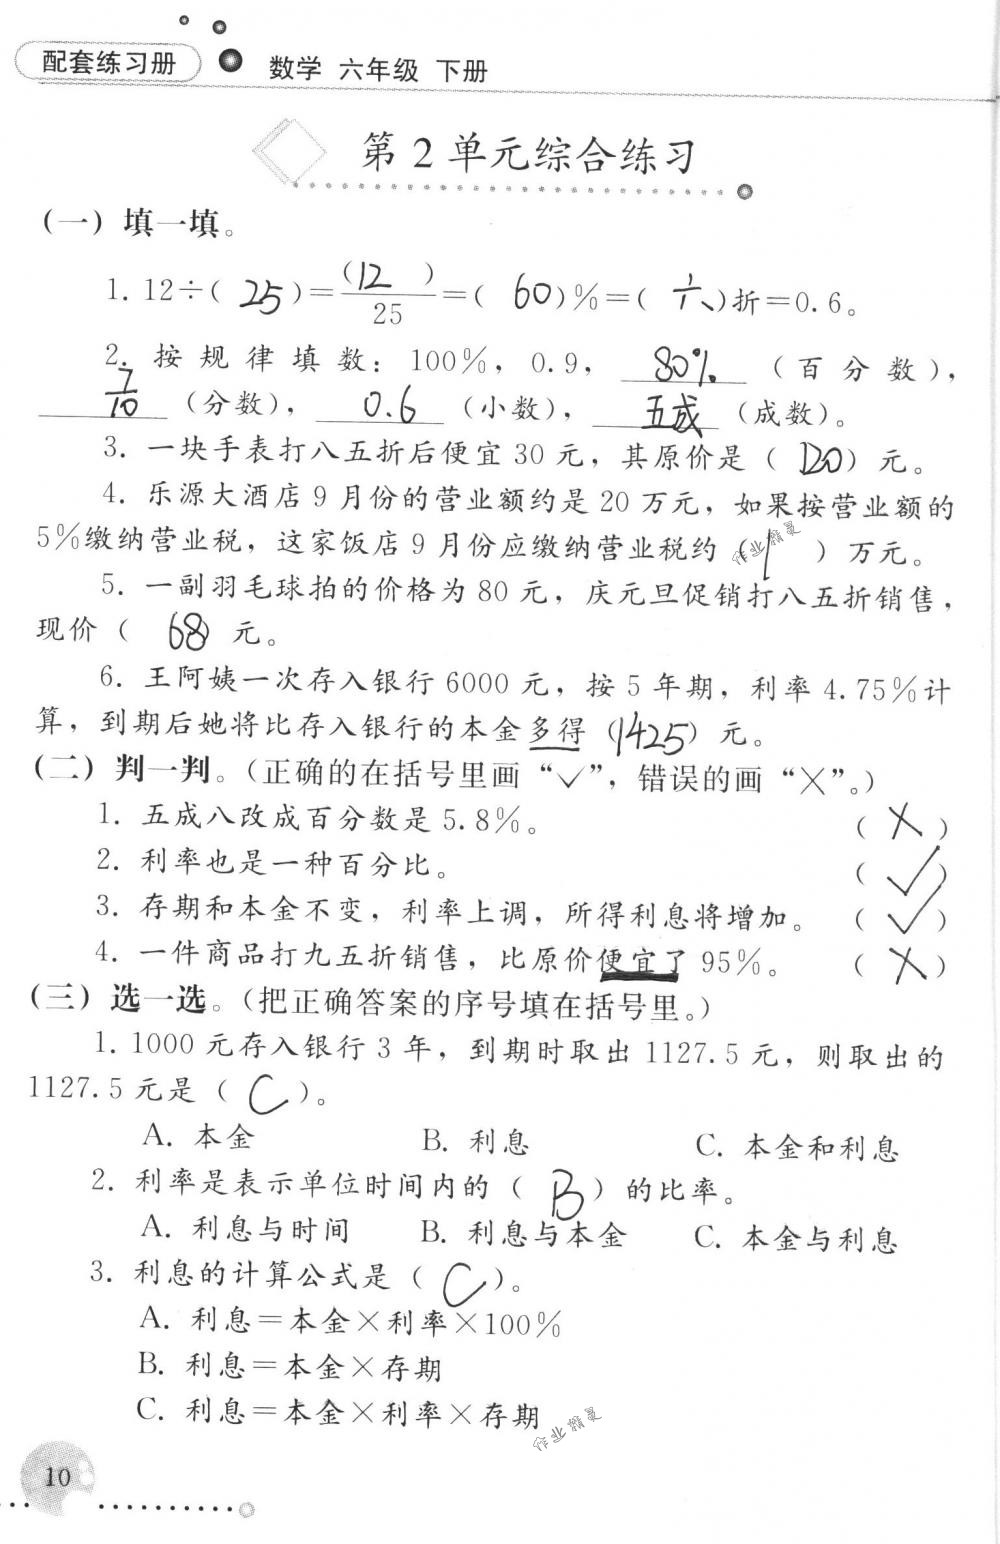 配套练习册 数学 六年级 下册
第2单元综合练习
(一) 填一填。
(12)
1. 12÷(25)=――=(60)%=(六)折=0.6。
25
2. 按规律填数：100%，0.9，80%（百分数），
7/10（分数），0.6（小数），五成（成数）。
3. 一块手表打八五折后便宜30元，其原价是（120）元。
4. 乐源大酒店9月份的营业额约是20万元，如果按营业额的
5%缴纳营业税，这家饭店9月份应缴纳营业税约（1）万元。
作业精灵
5. 一副羽毛球拍的价格为80元，庆元旦促销打八五折销售，
现价（68）元。
6. 王阿姨一次存入银行6000元，按5年期，利率4.75%计
算，到期后她将比存入银行的本金多得（1425）元。
(二) 判一判。（正确的在括号里画“✓”，错误的画“×”。）
1. 五成八改成百分数是5.8%。（×）
2. 利率也是一种百分比。（✓）
3. 存期和本金不变，利率上调，所得利息将增加。（✓）
4. 一件商品打九五折销售，比原价便宜了95%。（×）
(三) 选一选。（把正确答案的序号填在括号里。）
1. 1000元存入银行3年，到期时取出1127.5元，则取出的
1127.5元是（C）。
A. 本金 B. 利息 C. 本金和利息
2. 利率是表示单位时间内的（B）的比率。
A. 利息与时间 B. 利息与本金 C. 本金与利息
3. 利息的计算公式是（C）。
A. 利息=本金×利率×100%
B. 利息=本金×存期
C. 利息=本金×利率×存期
作业精灵
10